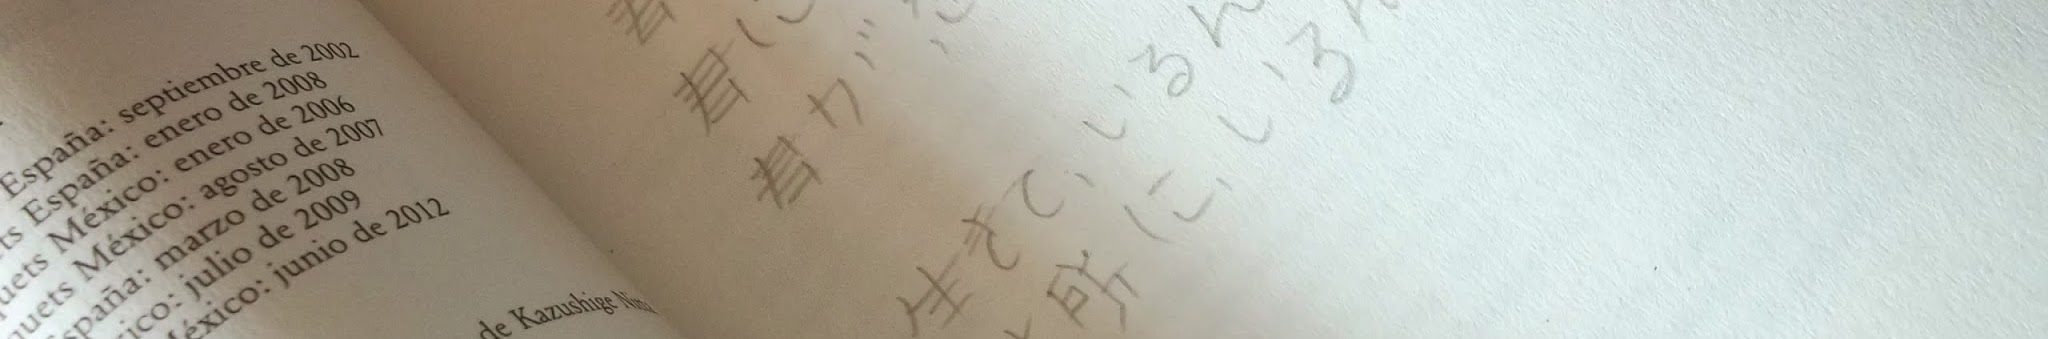 España: septiembre de 2002
España: enero de 2008
México: enero de 2006
México: agosto de 2007
España: marzo de 2008
julio de 2009
México: junio de 2012
de Kazushige
君
君に
君が
生きているん
所にいるん